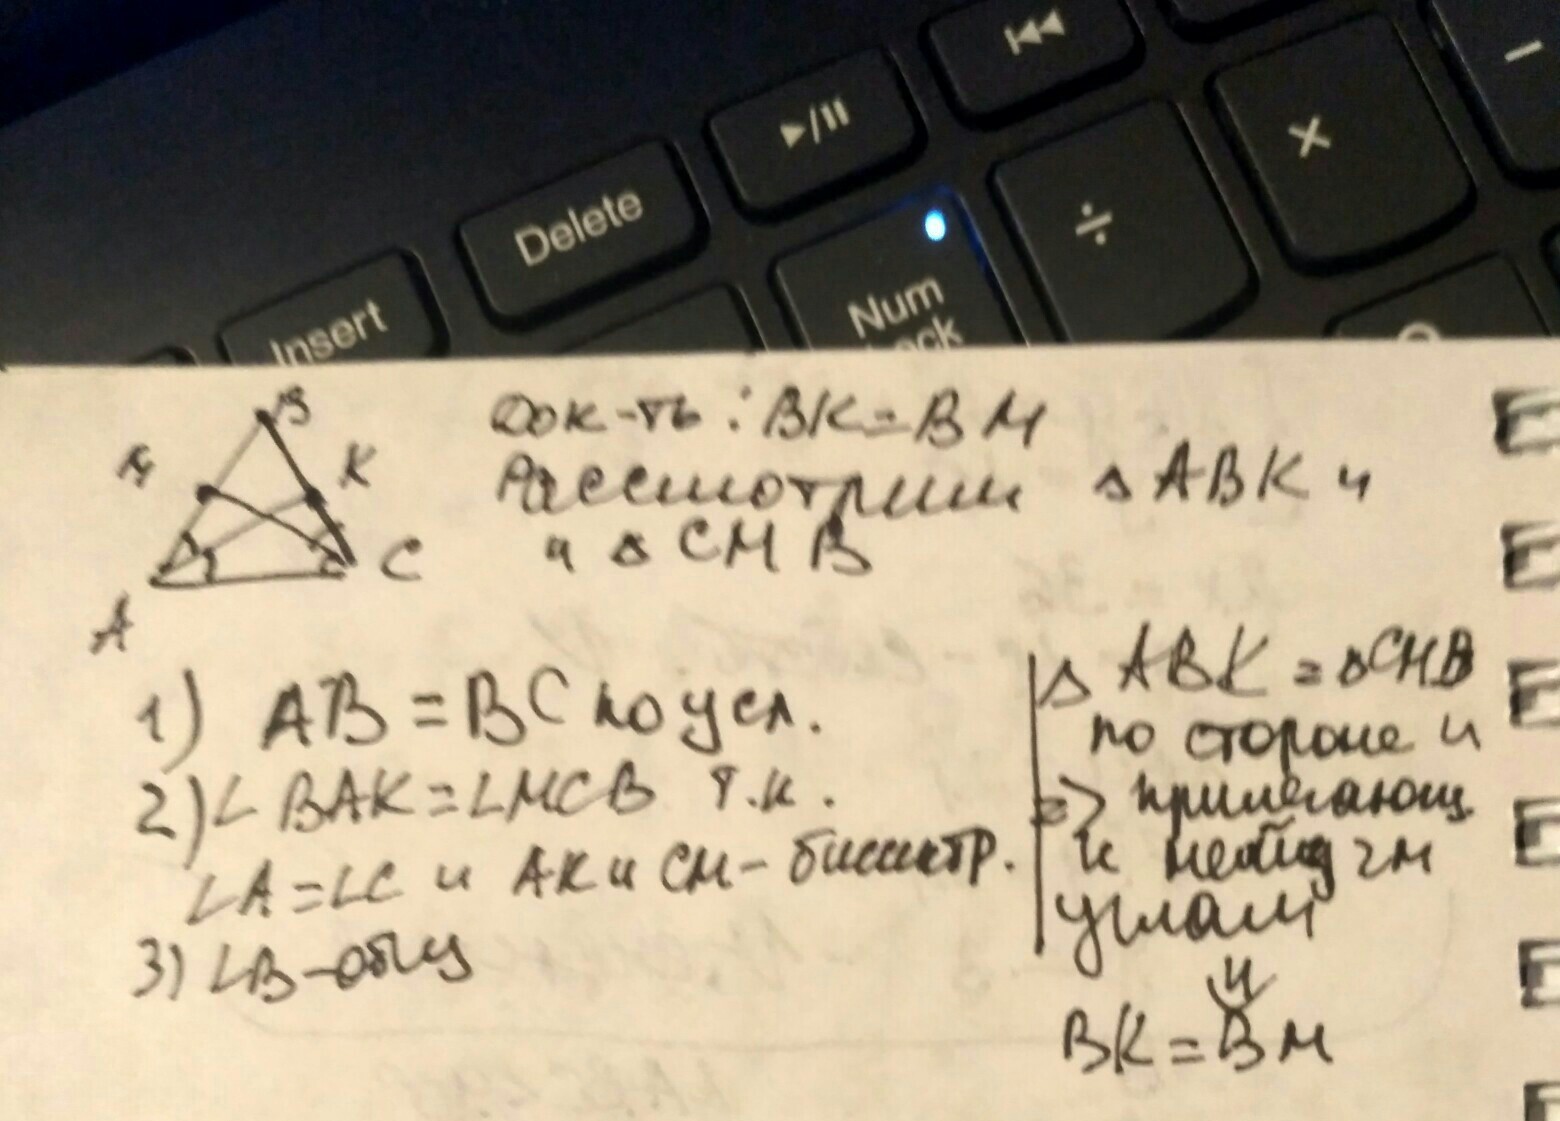 Insert
Delete
▶/II
Num
Lock
÷
×
−
B
M
K
C
A
Док-ть: BK=BM
Рассмотрим △ ABK и
и △ CMB
1) AB = BC по усл.
2) ∠ BAK = ∠MCB т.к.
∠A = ∠C и AK и CM - биссектр.
3) ∠B - общ
△ ABK = △CMB
по стороне и
=> прилегающ
к ней
углам
BK = BM